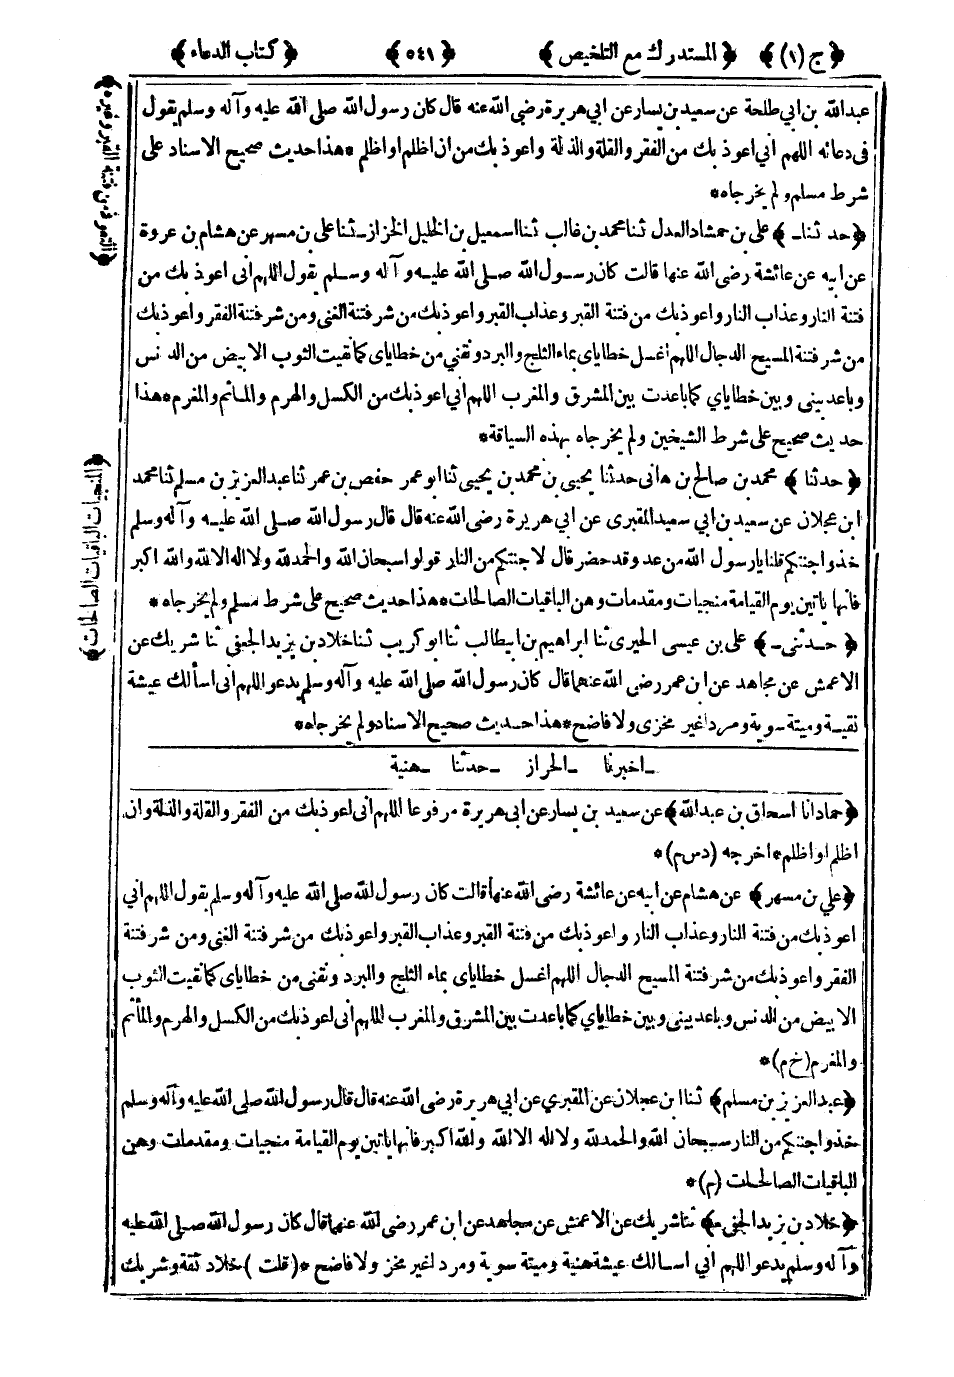 ﴿ ج (١) ﴾ ﴿ المستدرك مع التلخيص ﴾ ﴿ ٥٤١ ﴾ ﴿ كتاب الدعاء ﴾
عبدالله بن ابي طلحة عن سعيد بن يسار عن ابي هريرة رضى الله عنه قال كان رسول الله صلى الله عليه وآله وسلم يقول
فى دعائه اللهم اني اعوذ بك من الفقر والقلة والذلة واعوذ بك من ان اظلم او اظلم * هذا حديث صحيح الاسناد على
شرط مسلم ولم يخرجاه *
﴿ حدثنا ـ ﴾ على بن حمشاد العدل ثنا محمد بن غالب ثنا اسمعيل بن الخليل الخراز ـ ثنا على بن مسهر عن هشام بن عروة
عن ابيه عن عائشة رضى الله عنها قالت كان رسول الله صلى الله عليه وآله وسلم يقول اللهم انى اعوذ بك من
فتنة النار وعذاب النار واعوذ بك من فتنة القبر وعذاب القبر واعوذ بك من شر فتنة الغنى ومن شر فتنة الفقر واعوذ بك
من شر فتنة المسيح الدجال اللهم اغسل خطاياى بماء الثلج والبرد ونقني من خطاياى كما نقيت الثوب الابيض من الدنس
وباعد بينى وبين خطاياي كما باعدت بين المشرق والمغرب اللهم اني اعوذ بك من الكسل والهرم والمأثم والمغرم * هذا
حديث صحيح على شرط الشيخين ولم يخرجاه بهذه السياقة *
﴿ حدثنا ﴾ محمد بن صالح بن هانى حدثنا يحيى بن محمد بن يحيى ثنا ابو عمر حفص بن عمر ثنا عبد العزيز بن مسلم ثنا محمد
ابن عجلان عن سعيد بن ابي سعيد المقبرى عن ابي هريرة رضى الله عنه قال قال رسول الله صلى الله عليه وآله وسلم
خذوا جنتكم قلنا يا رسول الله من عدو قد حضر قال لا جنتكم من النار قولوا سبحان الله والحمد لله ولا اله الا الله والله اكبر
فانها ياتين يوم القيامة منجيات ومقدمات وهن الباقيات الصالحات * هذا حديث صحيح على شرط مسلم ولم يخرجاه *
﴿ حدثنى ـ ﴾ على بن عيسى الحيرى ثنا ابراهيم بن ابيطالب ثنا ابو كريب ثنا خلاد بن يزيد الجعفى ثنا شريك عن
الاعمش عن مجاهد عن ابن عمر رضى الله عنهما قال كان رسول الله صلى الله عليه وآله وسلم يدعو اللهم انى اسألك عيشة
نقية وميتة سوية ومردا غير مخزى ولا فاضح * هذا حديث صحيح الاسناد ولم يخرجاه *
ـ اخبرنا ـ الحراز ـ حدثنا ـ هنية
﴿ حماد انا اسحاق بن عبدالله ﴾ عن سعيد بن يسار عن ابى هريرة مرفوعا اللهم انى اعوذ بك من الفقر والقلة والذلة وان
اظلم او اظلم * اخرجه (دس م) *
﴿ علي بن مسهر ﴾ عن هشام عن ابيه عن عائشة رضى الله عنها قالت كان رسول الله صلى الله عليه وآله وسلم يقول اللهم اني
اعوذ بك من فتنة النار وعذاب النار واعوذ بك من فتنة القبر وعذاب القبر واعوذ بك من شر فتنة الغنى ومن شر فتنة
الفقر واعوذ بك من شر فتنة المسيح الدجال اللهم اغسل خطاياى بماء الثلج والبرد ونقنى من خطاياى كما نقيت الثوب
الابيض من الدنس وباعد بينى وبين خطاياي كما باعدت بين المشرق والمغرب اللهم انى اعوذ بك من الكسل والهرم والمأثم
والمغرم (خ م) *
﴿ عبد العزيز بن مسلم ﴾ ثنا ابن عجلان عن المقبري عن ابي هريرة رضى الله عنه قال قال رسول الله صلى الله عليه وآله وسلم
خذوا جنتكم من النار سبحان الله والحمد لله ولا اله الا الله والله اكبر فانها ياتين يوم القيامة منجيات ومقدمات وهن
الباقيات الصالحات (م) *
﴿ خلاد بن يزيد الجعفى ﴾ ثنا شريك عن الاعمش عن مجاهد عن ابن عمر رضي الله عنهما قال كان رسول الله صلى الله عليه
وآله وسلم يدعو اللهم اني اسالك عيشة هنية وميتة سوية ومردا غير مخز ولا فاضح * (قلت) خلاد ثقة وشريك
﴿ التعوذ من فتنة القبر وغيره ﴾
﴿ المنجيات الباقيات الصالحات ﴾